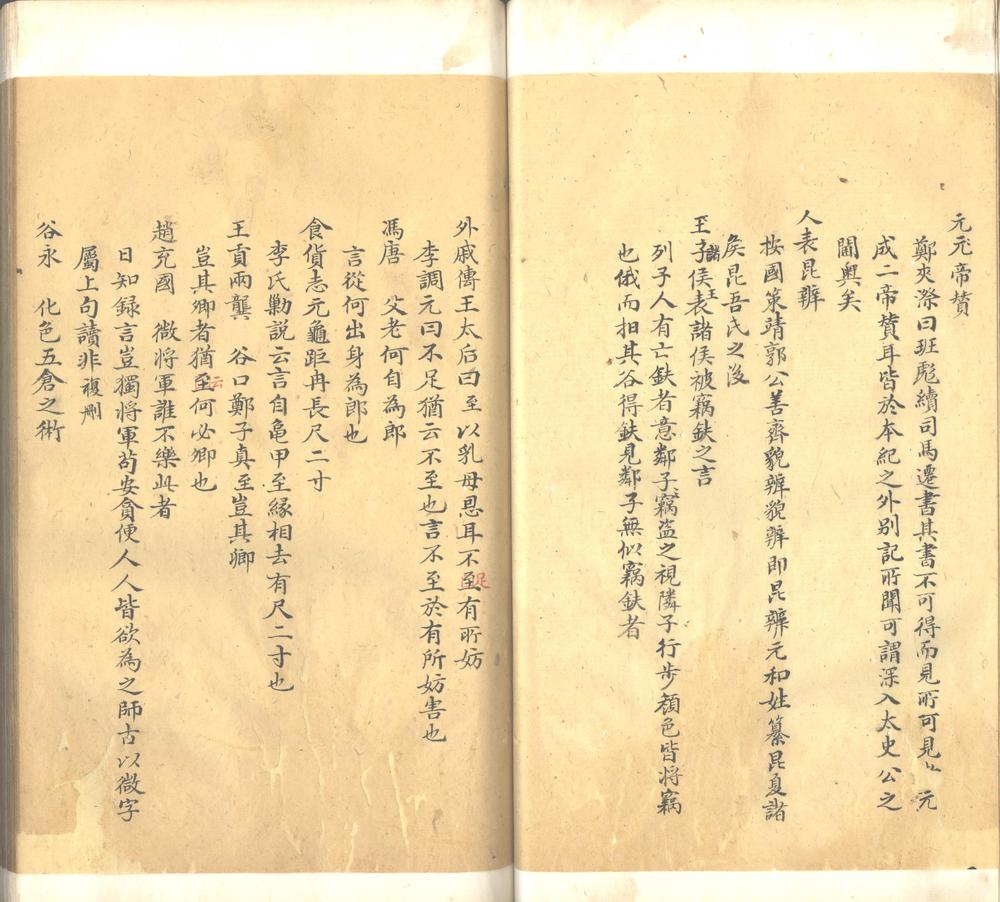 元元帝賛
鄭夾漈曰班彪續司馬遷書其書不可得而見所可見
元
成二帝賛耳皆於本紀之外別記所聞可謂深入太史公之
閫奧矣
人表昆辨
按國策靖郭公善齊貌辨貌辨即昆辨元和姓纂昆夏諸
侯昆吾氏之後
王子侯表諸侯被竊鈇之言
諸
王
列子人有亡鈇者意鄰子竊盜之視隣子行步顏色皆將竊
也俄而抇其谷得鈇見鄰子無似竊鈇者
外戚傳王太后曰至以乳母恩耳不至有所妨
足
李調元曰不足猶云不至也言不至於有所妨害也
馮唐 父老何自為郎
言從何出身為郎也
食貨志元龜距冉長尺二寸
李氏勦說云言自龜甲至緣相去有尺二寸也
王貢兩龔 谷口鄭子真至豈其卿
豈其卿者猶至何必卿也
云
趙充國 微將軍誰不樂此者
日知録言豈獨將軍苟安貪便人人皆欲為之師古以微字
屬上句讀非複刪
谷永 化色五倉之術